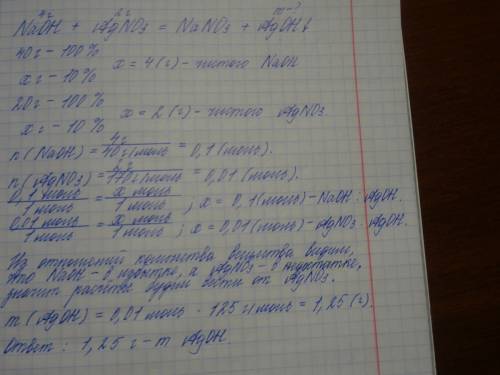 4г 2г m-?
NaOH + AgNO3 = NaNO3 + AgOH↓
40 г - 100 %
x г - 10 % x = 4 (г) - чистого NaOH
20 г - 100 %
x г - 10 % x = 2 (г) - чистого AgNO3.
n (NaOH) = 4г / 40 г/моль = 0,1 (моль).
n (AgNO3) = 2г / 170 г/моль = 0,01 (моль).
0,1 моль / 1 моль = x моль / 1 моль ; x = 0,1 (моль) - NaOH : AgOH.
0,01 моль / 1 моль = x моль / 1 моль ; x = 0,01 (моль) - AgNO3 : AgOH.
Из отношении количества вещества видим,
что NaOH - в избытке, а AgNO3 - в недостатке,
значит расчёты будем вести от AgNO3.
m (AgOH) = 0,01 моль · 125 г/моль = 1,25 (г).
Ответ : 1,25 г - m AgOH.